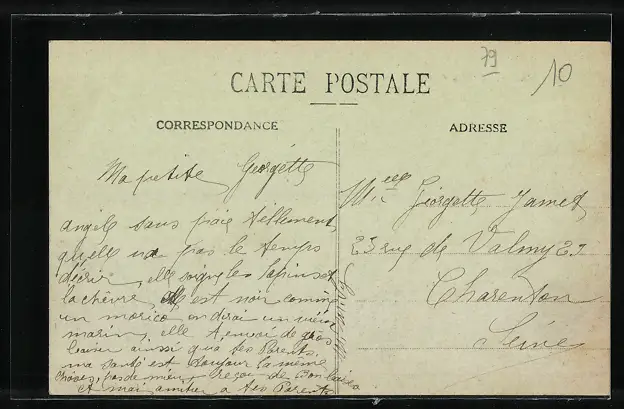 79
10
CARTE POSTALE
CORRESPONDANCE
ADRESSE
Ma petite Georgette
angele sans proie tellement
quelle na pas le temps
décrir, elle soigne les lapins et
la chèvre, elle est noir comme
un morico on dirai un vieux
marin, elle t, envoi de gros
baiser ainsi qua tes Parents.
ma santé est toujour la même
choses, pas de mieu, reçoi de bon baiser
et mai amitier a tes Parents
Melle Georgette Jamet
23 rue de Valmy 23
Charenton
Seine